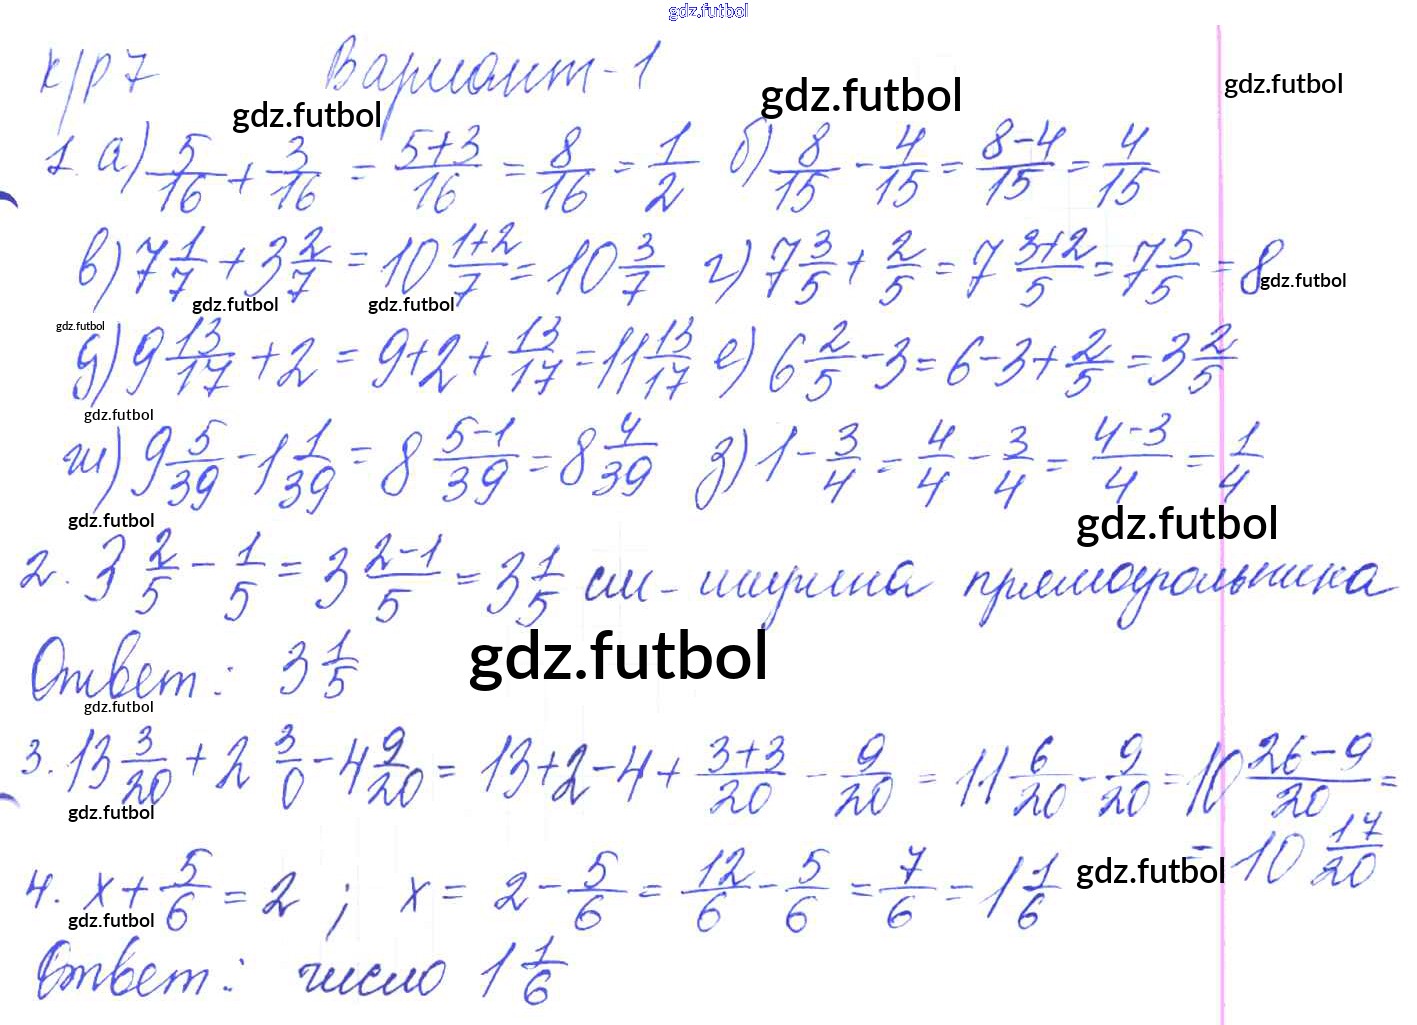 gdz.futbol
к/р 7 Вариант-1
gdz.futbol gdz.futbol gdz.futbol
1. а) 5/16 + 3/16 = (5+3)/16 = 8/16 = 1/2 б) 8/15 - 4/15 = (8-4)/15 = 4/15
в) 7 1/7 + 3 2/7 = 10 (1+2)/7 = 10 3/7 г) 7 3/5 + 2/5 = 7 (3+2)/5 = 7 5/5 = 8
gdz.futbol gdz.futbol gdz.futbol
gdz.futbol
д) 9 13/17 + 2 = 9+2+ 13/17 = 11 13/17 е) 6 2/5 - 3 = 6-3+ 2/5 = 3 2/5
gdz.futbol
ж) 9 5/39 - 1 1/39 = 8 (5-1)/39 = 8 4/39 з) 1 - 3/4 = 4/4 - 3/4 = (4-3)/4 = 1/4
gdz.futbol gdz.futbol
2. 3 2/5 - 1/5 = 3 (2-1)/5 = 3 1/5 см - ширина прямоугольника
Ответ: 3 1/5 gdz.futbol
gdz.futbol
3. 13 3/20 + 2 3/0 - 4 9/20 = 13+2-4+ (3+3)/20 - 9/20 = 11 6/20 - 9/20 = 10 (26-9)/20 =
gdz.futbol
= 10 17/20
4. x + 5/6 = 2 ; x = 2 - 5/6 = 12/6 - 5/6 = 7/6 = 1 1/6 gdz.futbol
gdz.futbol
Ответ: число 1 1/6